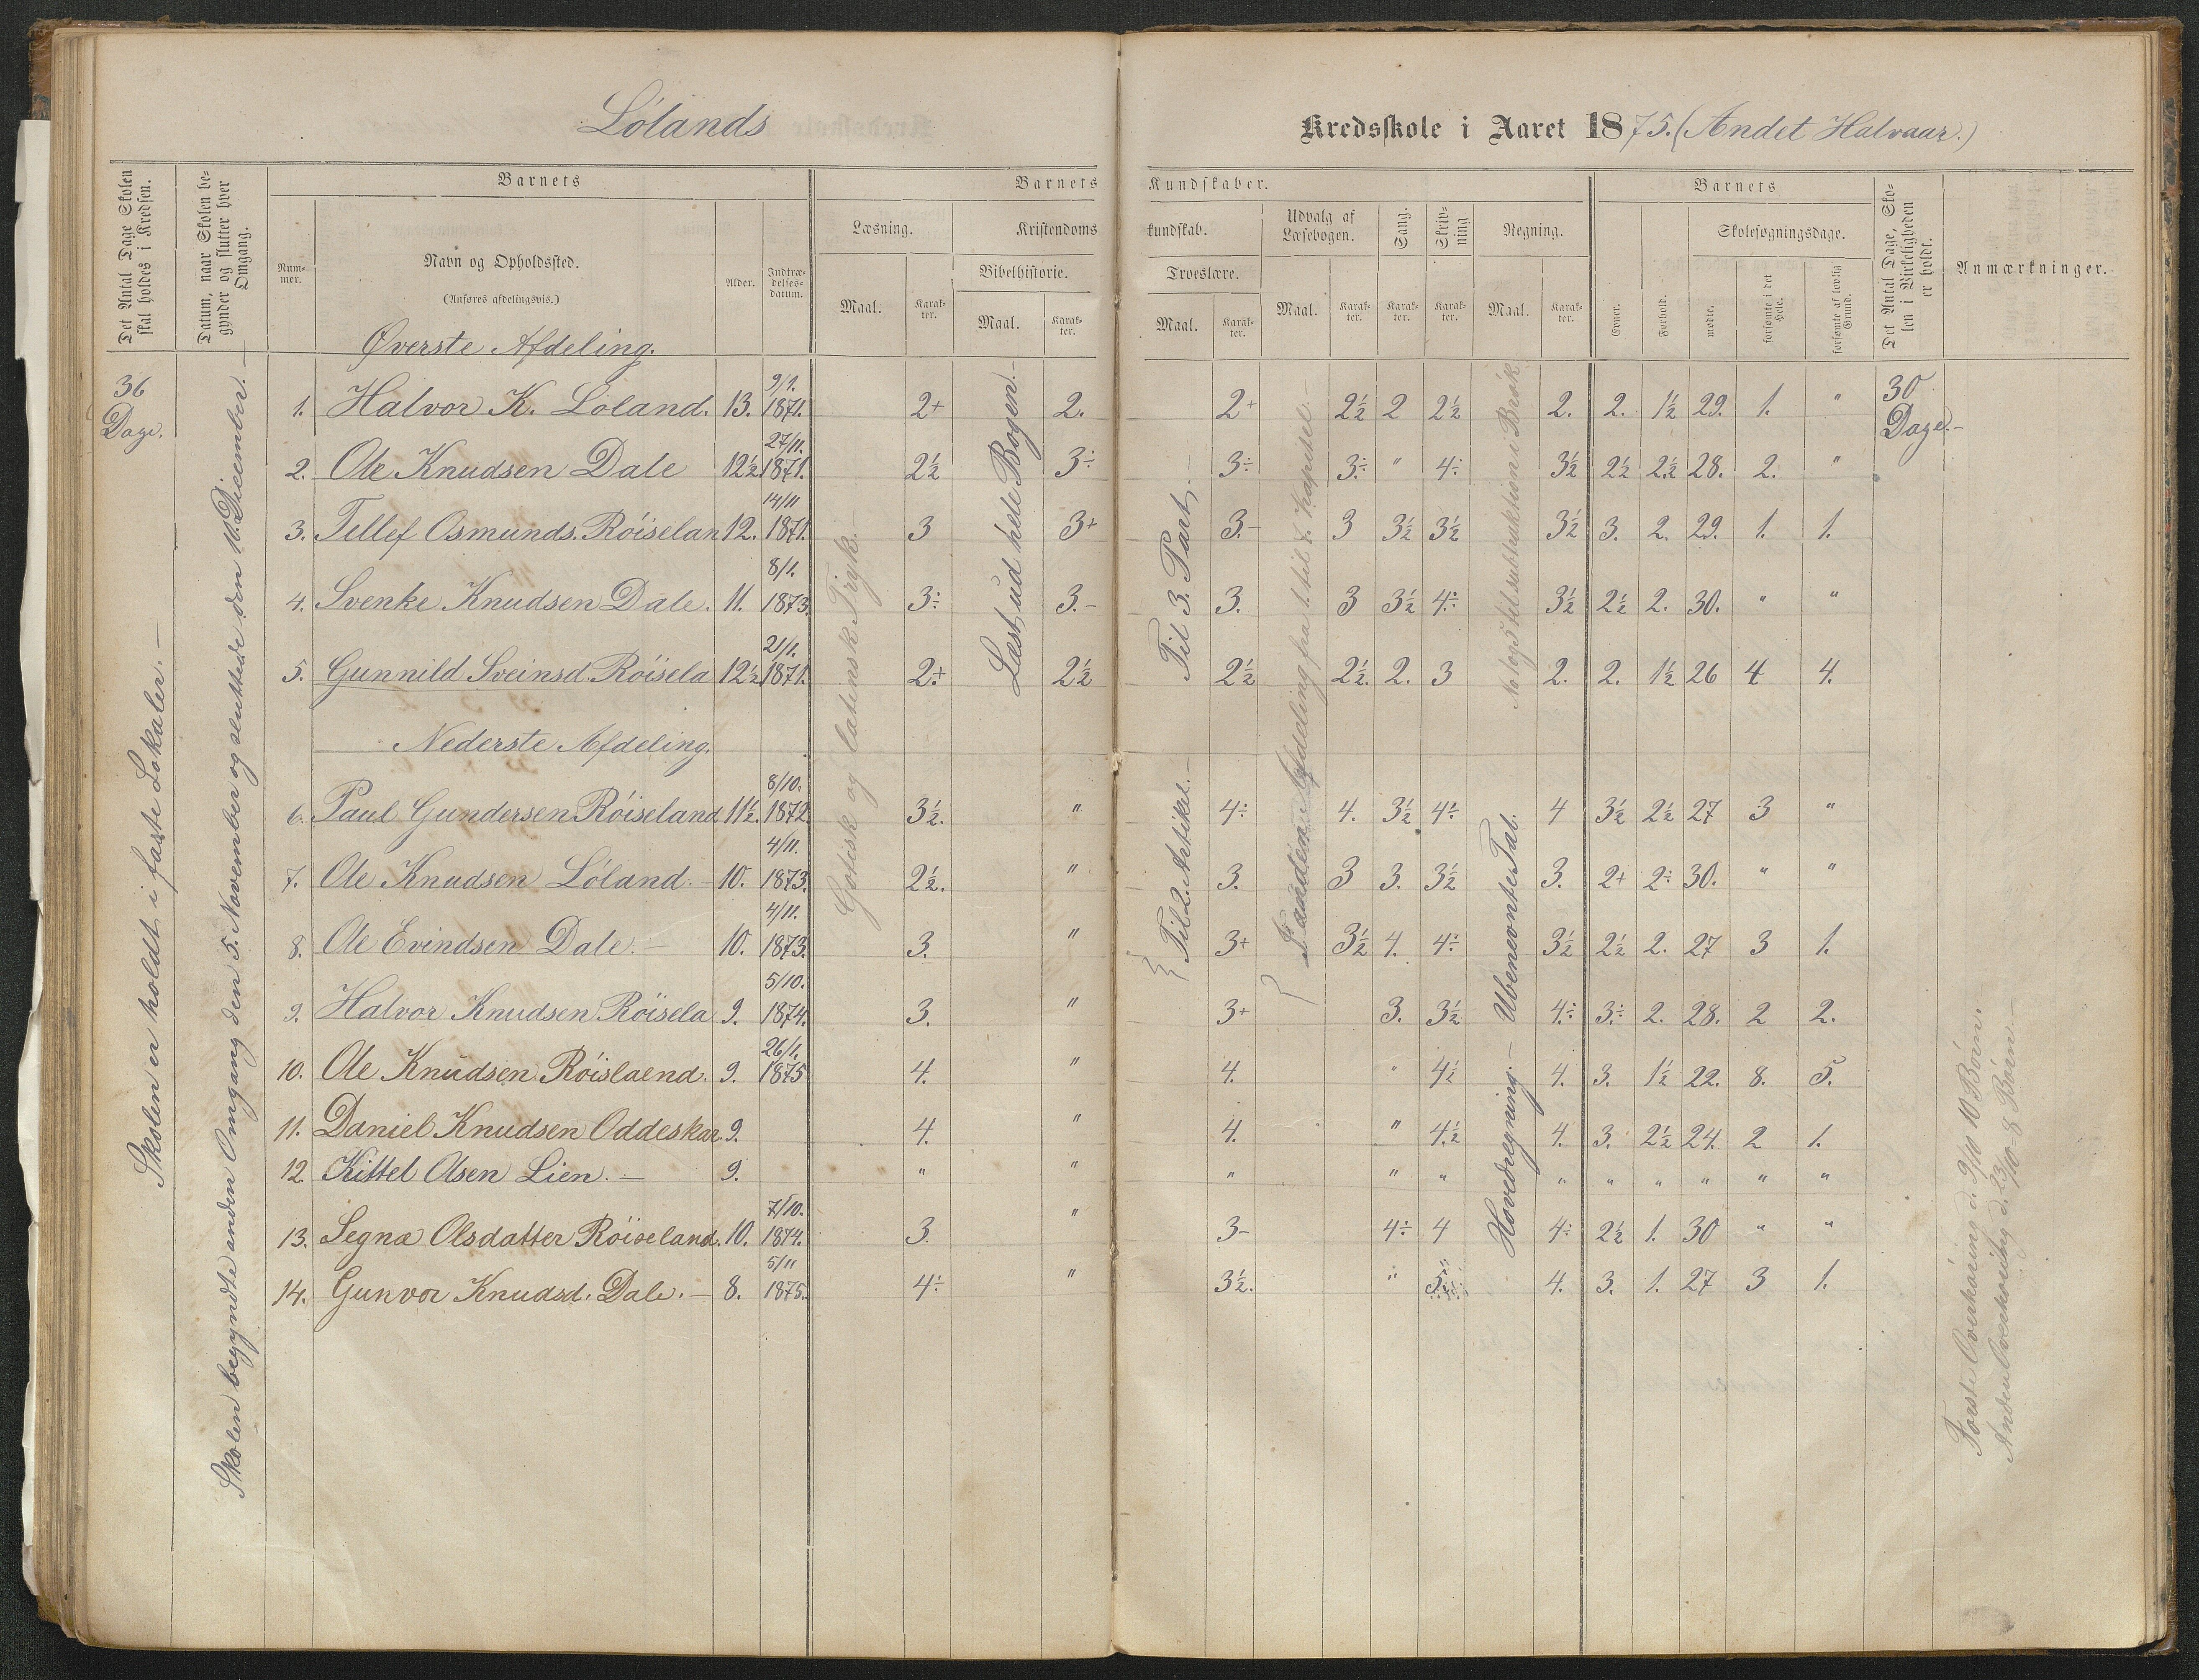 Lólands Kredsskole i Aaret 1875. (Andet Halvaar.)
Det Antal Dage Skolen skal holdes i Kredsen.
Datum, naar Skolen begynder og slutter hver Omgang.
Barnets
Nummer.
Navn og Opholdssted.
(Anføres afdelingsvis.)
Alder.
Indtrædelsesdatum.
Barnets Kundskaber.
Læsning.
Maal. Karakter.
Kristendomskundskab.
Bibelhistorie.
Maal. Karakter.
Troeslære.
Maal. Karakter.
Udvalg af Læsebogen.
Maal. Karakter.
Sang.
Karakter.
Skrivning
Karakter.
Regning.
Maal. Karakter.
Barnets
Evner. Forhold.
Skolesøgningsdage.
mødte. forsømte i det Hele. forsømte af lovlig Grund.
Det Antal Dage, Skolen i Virkeligheden er holdt.
Anmærkninger.
36 Dage.
Skolen er holdt i faste Lokaler. —
Skolen begyndte anden Omgang den 5. November og sluttede den 16. Dicember. —
Gotisk og latensk Tryk. —
Læst ud hele Bogen. —
Til 3. Part. —
Til 2. Artikel. —
Hovedregning. — Ubenevnte Tal.
30 Dage. —
Øverste Afdeling.
1. Halvor K. Lóland. 13. 9/1. 1871. 2+ 2. 2+ 2½ 2 2½ 2. 2. 1½ 29. 1. "
2. Ole Knudsen Dale 12½ 27/11. 1871. 2½ 3÷ 3÷ 3÷ " 4÷ 3½ 2½ 2½ 28. 2. "
3. Tellef Osmunds. Róiselan 12. 14/11 1871. 3 3+ 3.- 3 3½ 3½ 3½ 3. 2. 29. 1. 1.
4. Svenke Knudsen Dale. 11. 8/1. 1873. 3÷ 3.- 3. 3 3½ 4÷ 3½ 2½ 2. 30. " "
5. Gunnild Sveinsd. Róisela 12½ 21/1. 1871. 2+ 2½ 2½ 2½. 2. 3 2. 2. 1½ 26 4 4.
Nederste Afdeling.
6. Paul Gundersen Róiseland 11½. 8/10. 1872. 3½. " 4÷ 4. 3½ 4÷ 4 3½ 2½ 27 3 "
7. Ole Knudsen Lóland. — 10. 4/11. 1873. 2½. " 3. 3 3. 3½ 3. 2+ 2÷ 30. " "
8. Ole Evindsen Dale. — 10. 4/11. 1873. 3. " 3+ 3½ 4. 4÷ 3½ 2½ 2. 27 3 1.
9. Halvor Knudsen Róisela 9. 5/10. 1874. 3. " 3+ 3. 3½ 4÷ 3÷ 2. 28. 2 2.
10. Ole Knudsen Róislaend. 9. 26/1. 1875 4. " 4. " 4½ 4. 3. 1½ 22. 8. 5.
11. Daniel Knudsen Oddeskar. 9. 4. " 4. " 4½ 4. 3. 2½ 24. 2 1.
12. Kittel Olsen Lien. — 9. " " " " " " " " " " "
13. Segna Olsdatter Róiseland. 10. 7/10. 1874. 3. " 3- 4÷ 4 4÷ 2½ 1. 30 " "
14. Gunvor Knudsd. Dale. — 8. 5/11 1875. 4÷ " 3½. " 5 4. 3. 1. 27 3 1.
Forste Overhóring d. 9/10 10 Bórn. —
Anden Overhóring d. 23/10 8 Bórn —